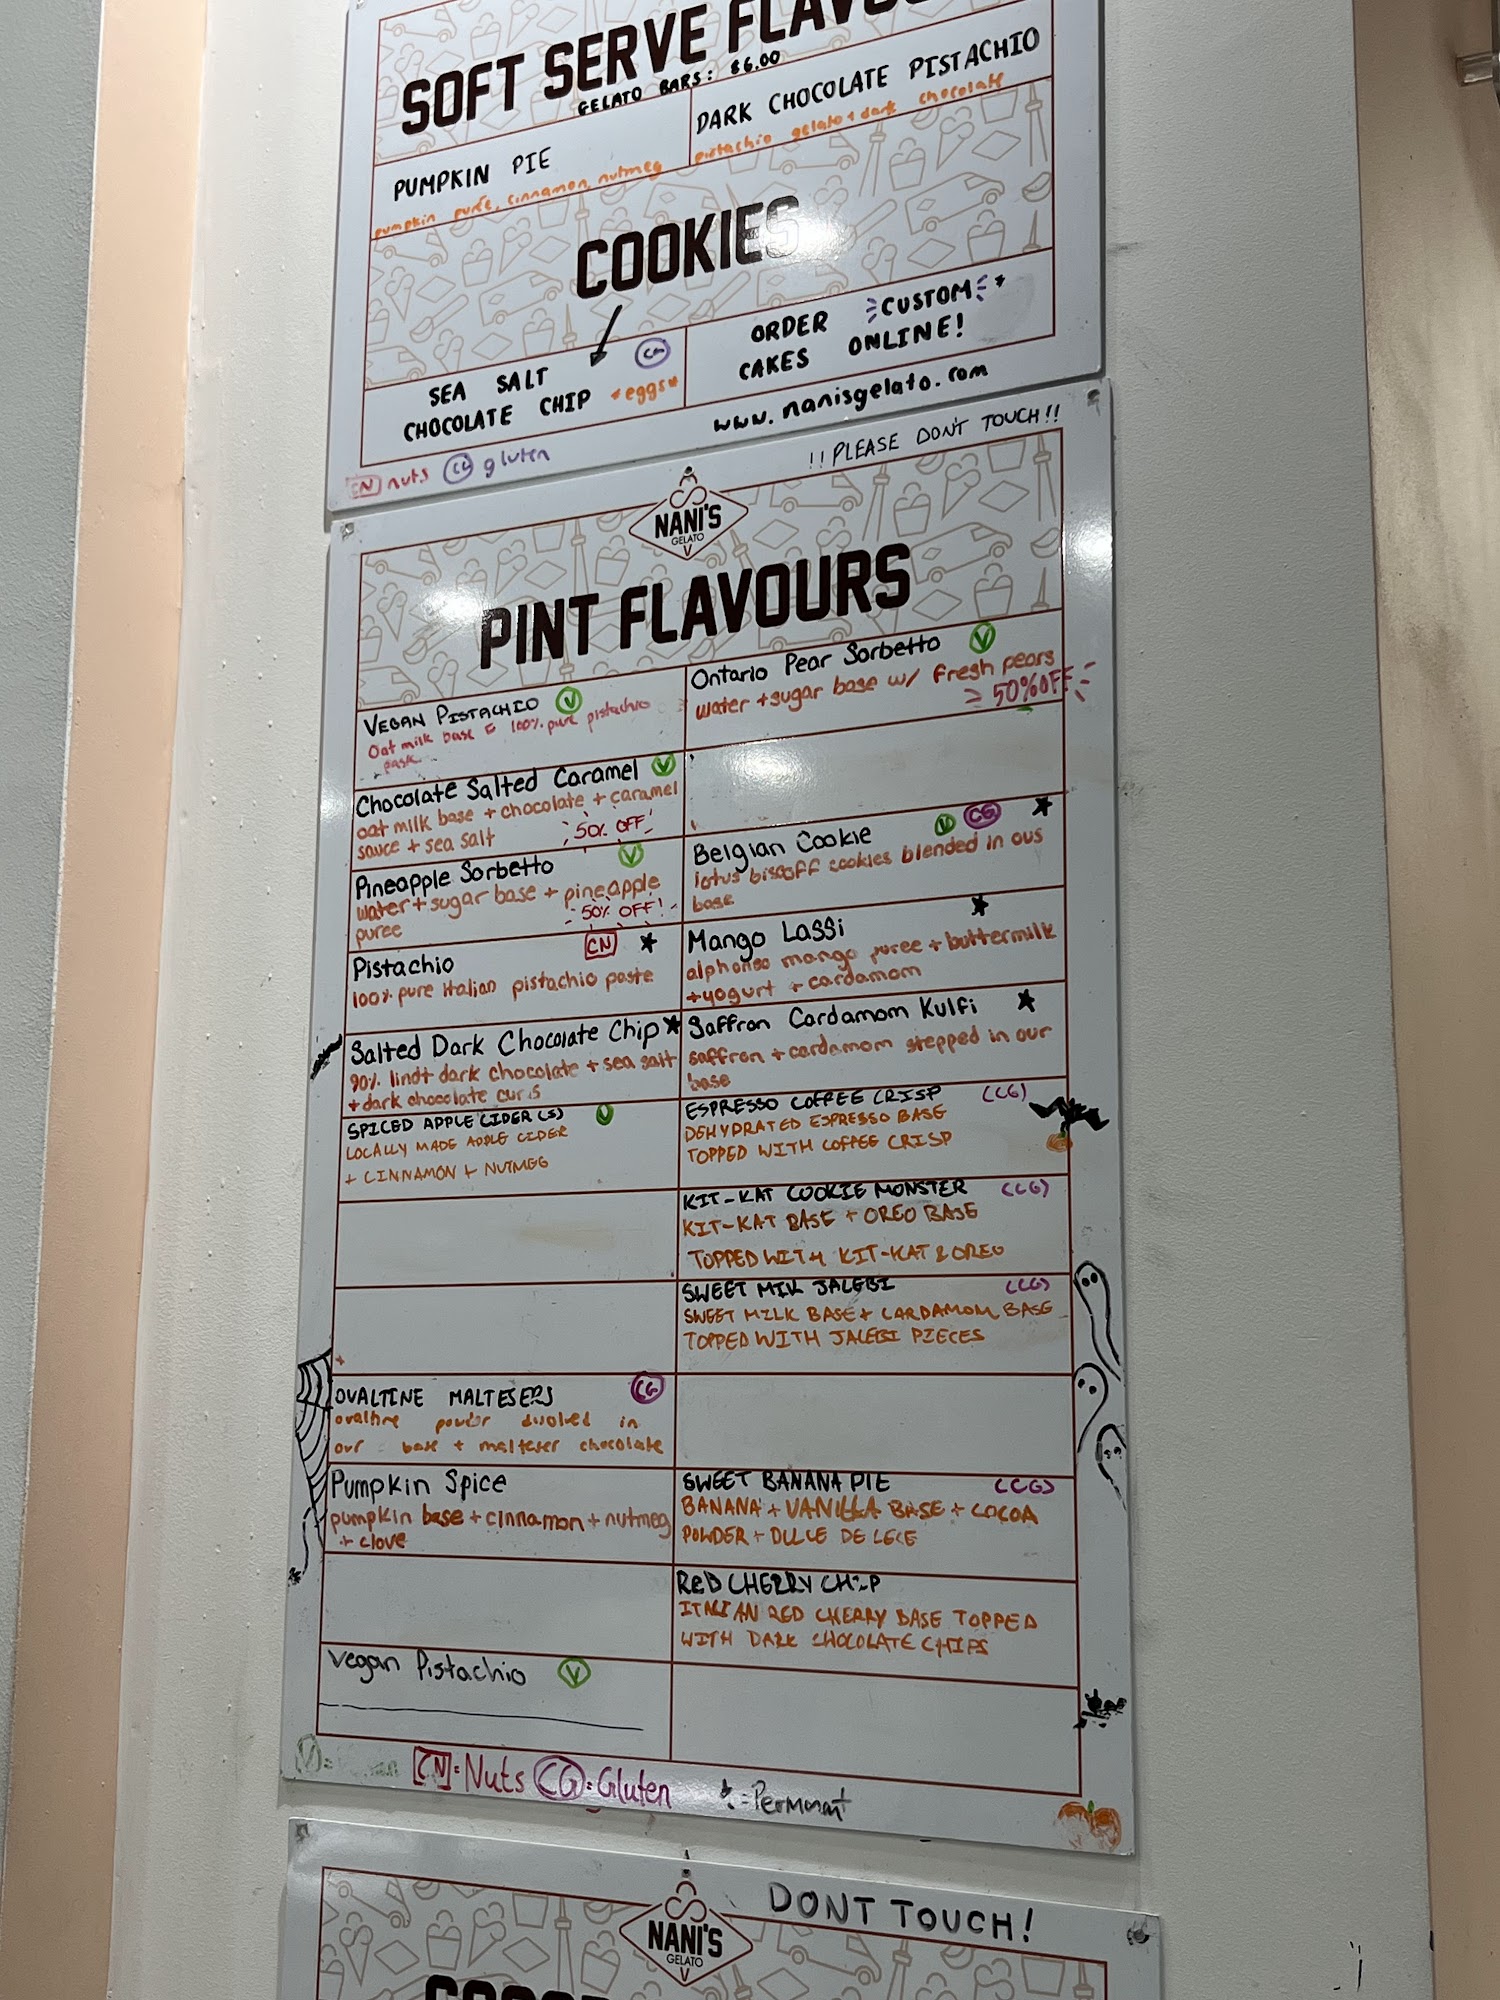 SOFT SERVE
GELATO BARS: $6.00
PUMPKIN PIE
pumpkin purée, cinnamon, nutmeg
DARK CHOCOLATE PISTACHIO
pistachio gelato + dark chocolate
COOKIES
SEA SALT CG
CHOCOLATE CHIP *eggs*
ORDER CUSTOM *
CAKES ONLINE!
www.nanisgelato.com
CN nuts CG gluten
!!PLEASE DON'T TOUCH!!
NANI'S
GELATO
PINT FLAVOURS
VEGAN PISTACHIO V
Oat milk base 100% pure pistachio
Chocolate Salted Caramel V
oat milk base + chocolate + caramel
sauce + sea salt 50% OFF!
Pineapple Sorbetto V
water + sugar base + pineapple
puree 50% OFF!
Pistachio CN ★
100% pure Italian pistachio paste
Salted Dark Chocolate Chip ★
90% lindt dark chocolate + sea salt
+ dark chocolate curls
SPICED APPLE CIDER (S) V
LOCALLY MADE APPLE CIDER
+ CINNAMON + NUTMEG
OVALTINE MALTESERS CG
ovaltine powder disolved in
our base + malteser chocolate
Pumpkin Spice
pumpkin base + cinnamon + nutmeg
+ clove
Vegan Pistachio V
Ontario Pear Sorbetto V
water + sugar base w/ fresh pears
50% OFF
Belgian Cookie V CG ★
lotus biscoff cookies blended in ous
base
Mango Lassi ★
alphonso mango puree + buttermilk
+ yogurt + cardamom
Saffron Cardamom Kulfi ★
saffron + cardamom stepped in our
base
ESPRESSO COFFEE CRISP (CG)
DEHYDRATED ESPRESSO BASE
TOPPED WITH COFFEE CRISP
KIT-KAT COOKIE MONSTER (CG)
KIT-KAT BASE + OREO BASE
TOPPED WITH KIT-KAT & OREO
SWEET MILK JALEBI (CG)
SWEET MILK BASE + CARDAMOM BASE
TOPPED WITH JALEBI PIECES
SWEET BANANA PIE (CG)
BANANA + VANILLA BASE + COCOA
POWDER + DULCE DE LECE
RED CHERRY CHIP
ITALIAN RED CHERRY BASE TOPPED
WITH DARK CHOCOLATE CHIPS
V= CN=Nuts CG=Gluten ★=Permanant
DONT TOUCH!
NANI'S
GELATO